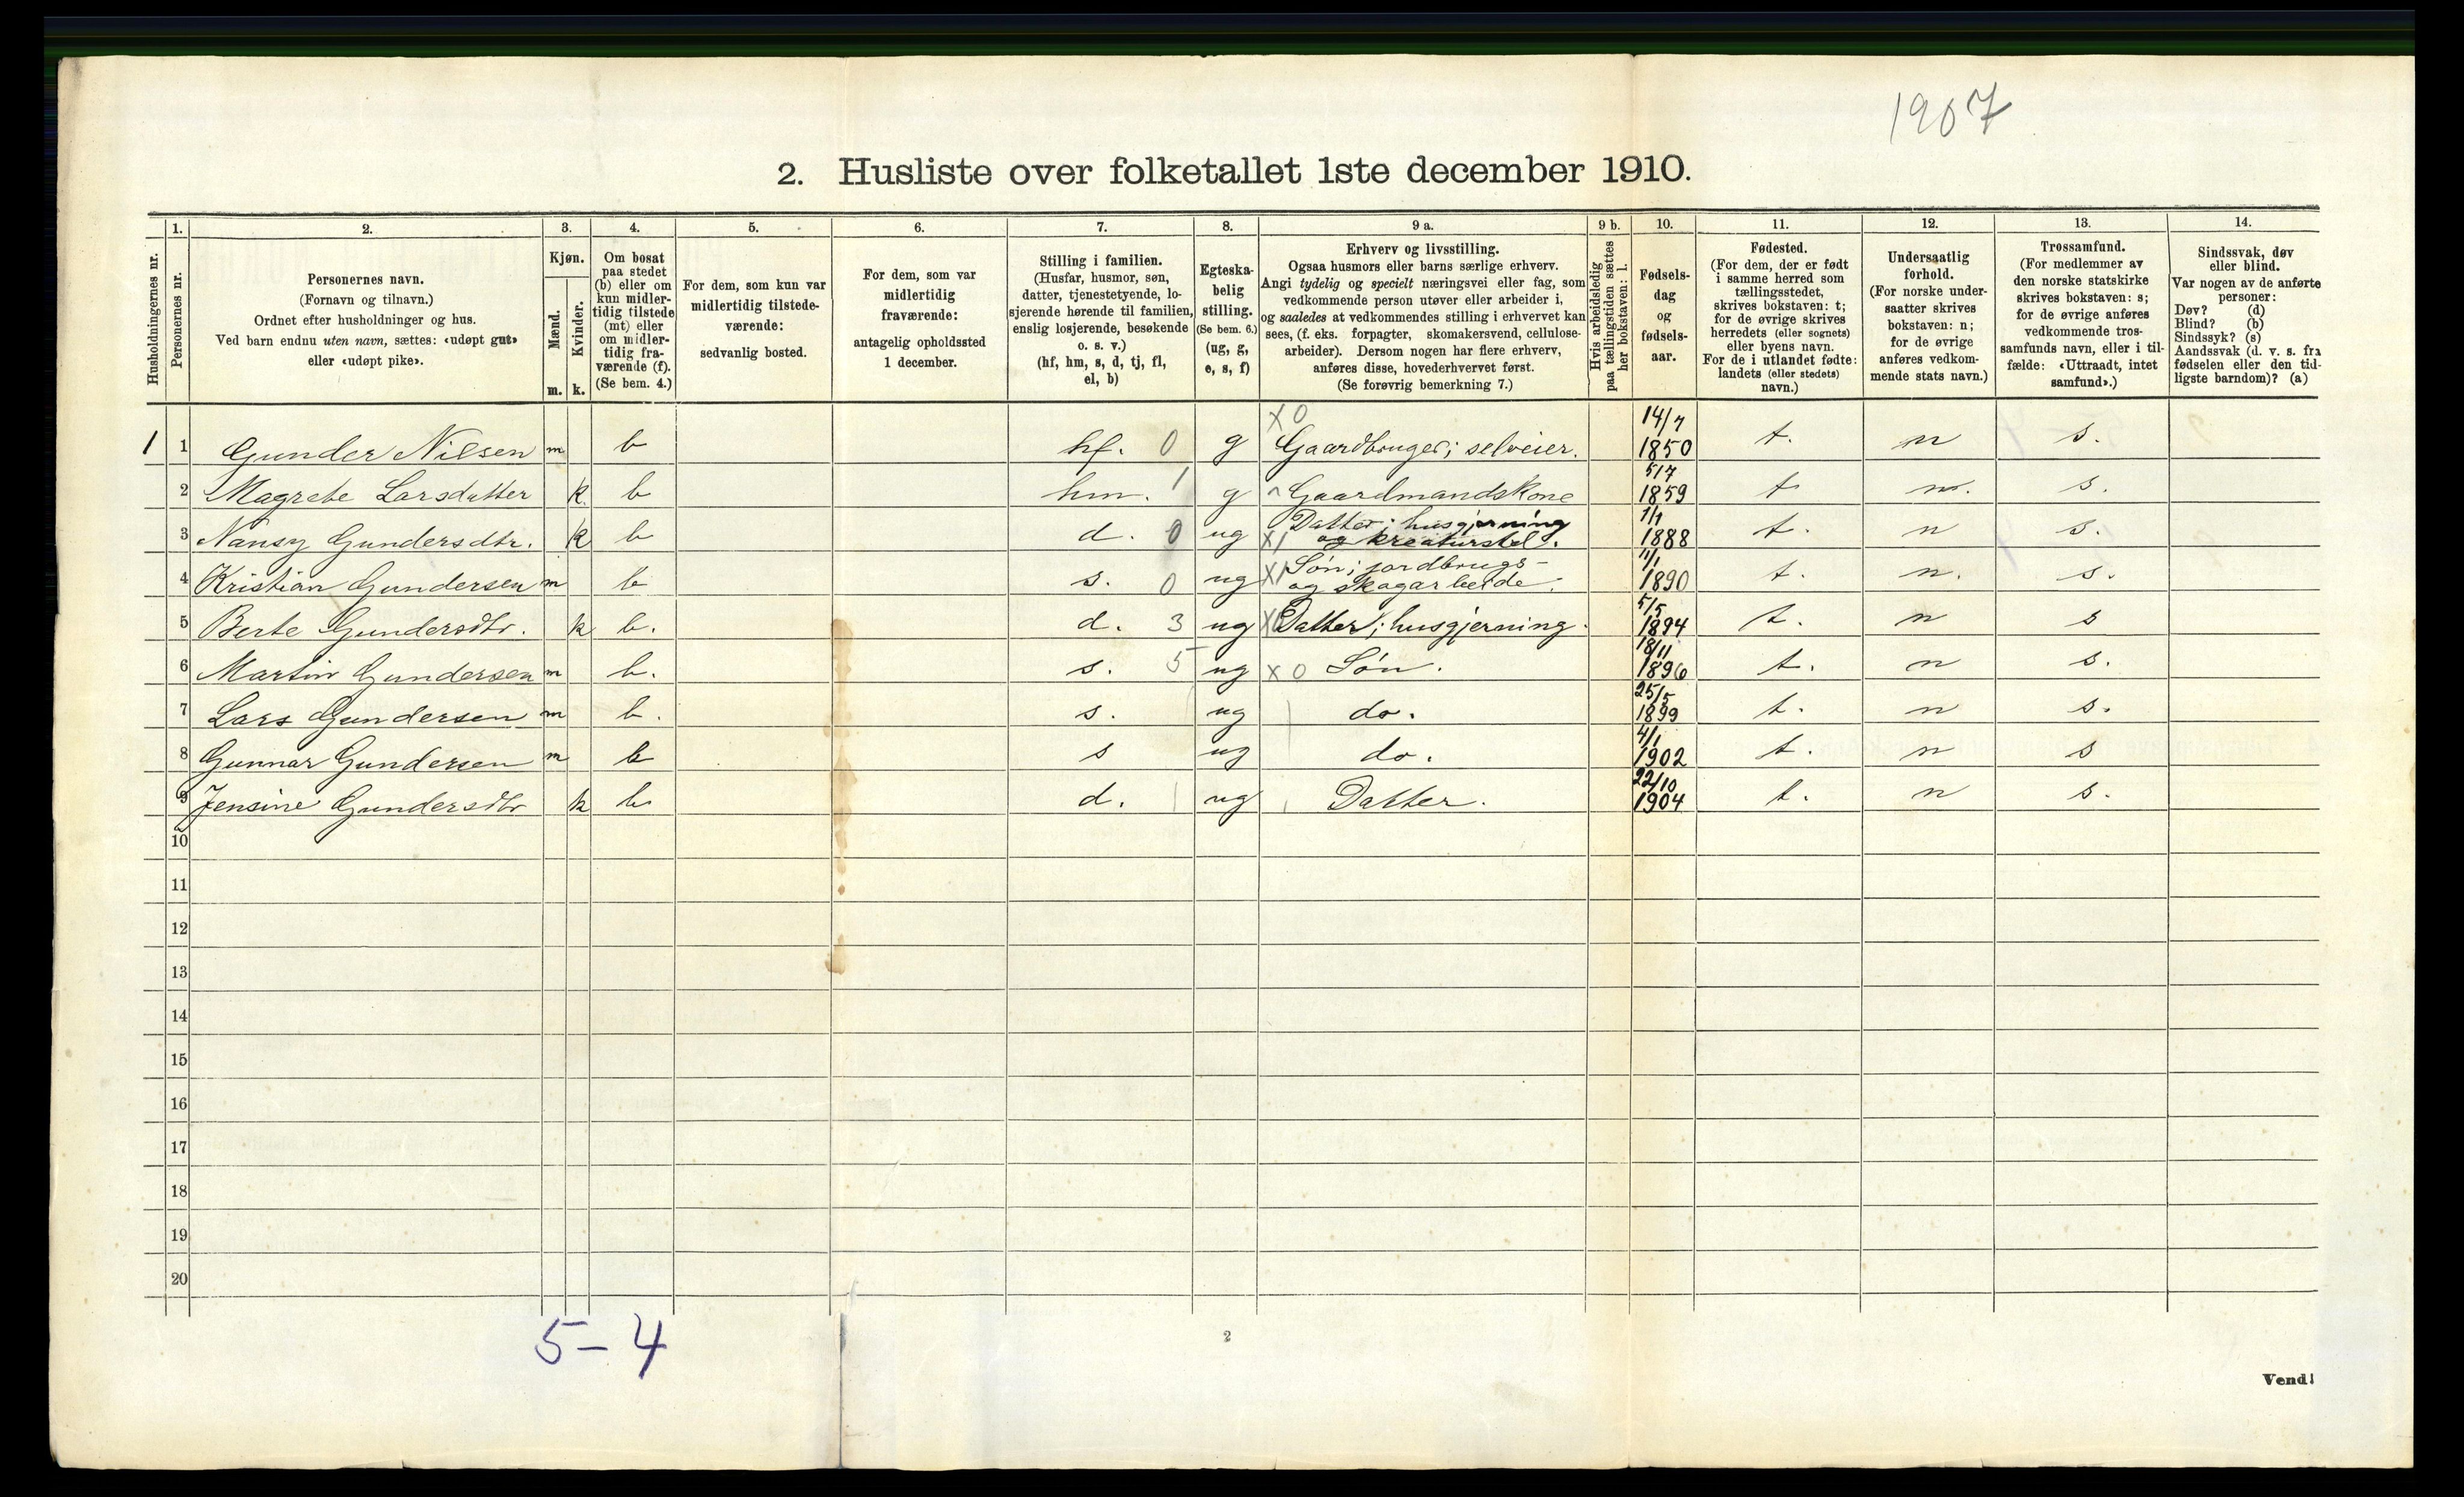 1907
2. Husliste over folketallet 1ste december 1910.
1. 2. 3. 4. 5. 6. 7. 8. 9 a. 9 b. 10. 11. 12. 13. 14.
Husholdningernes nr.
Personernes nr.
Personernes navn.
(Fornavn og tilnavn.)
Ordnet efter husholdninger og hus.
Ved barn endnu uten navn, sættes: «udøpt gut»
eller «udøpt pike».
Kjøn.
Mænd.
Kvinder.
m. k.
Om bosat
paa stedet
(b) eller om
kun midler-
tidig tilstede
(mt) eller
om midler-
tidig fra-
værende (f).
(Se bem. 4.)
For dem, som kun var
midlertidig tilstede-
værende:
sedvanlig bosted.
For dem, som var
midlertidig
fraværende:
antagelig opholdssted
1 december.
Stilling i familien.
(Husfar, husmor, søn,
datter, tjenestetyende, lo-
sjerende hørende til familien,
enslig losjerende, besøkende
o. s. v.)
(hf, hm, s, d, tj, fl,
el, b)
Egteska-
belig
stilling.
(Se bem. 6.)
(ug, g,
e, s, f)
Erhverv og livsstilling.
Ogsaa husmors eller barns særlige erhverv.
Angi tydelig og specielt næringsvei eller fag, som
vedkommende person utøver eller arbeider i,
og saaledes at vedkommendes stilling i erhvervet kan
sees, (f. eks. forpagter, skomakersvend, cellulose-
arbeider). Dersom nogen har flere erhverv,
anføres disse, hovederhvervet først.
(Se forøvrig bemerkning 7.)
Hvis arbeidsledig
paa tællingstiden sættes
her bokstaven: l.
Fødsels-
dag
og
fødsels-
aar.
Fødested.
(For dem, der er født
i samme herred som
tællingsstedet,
skrives bokstaven: t;
for de øvrige skrives
herredets (eller sognets)
eller byens navn.
For de i utlandet fødte:
landets (eller stedets)
navn.)
Undersaatlig
forhold.
(For norske under-
saatter skrives
bokstaven: n;
for de øvrige
anføres vedkom-
mende stats navn.)
Trossamfund.
(For medlemmer av
den norske statskirke
skrives bokstaven: s;
for de øvrige anføres
vedkommende tros-
samfunds navn, eller i til-
fælde: «Uttraadt, intet
samfund».)
Sindssvak, døv
eller blind.
Var nogen av de anførte
personer:
Døv? (d)
Blind? (b)
Sindssyk? (s)
Aandssvak (d. v. s. fra
fødselen eller den tid-
ligste barndom)? (a)
X 0 14/7
1 1 Gunder Nilsen m b hf. 0 g Gaardbruger; selveier. 1850 t. n s.
5/7
2 Magrete Larsdatter k. b hm. 1 g Gaardmandskone 1859 t n. s.
Datter; husgjerning 1/1
3 Nansy Gundersdtr. k b d. 0 ug X1 og kreaturstel. 1888 t. n s.
Søn; jordbrugs- 11/1
4 Kristian Gundersen m b s. 0 ug X1 og skogarbeide. 1890 t. n. s.
5/5
5 Berte Gundersdtr. k b. d. 3 ug Datter; husgjerning. 1894 t. n s
18/11
6 Martin Gundersen m b. s. 5 ug X 0 Søn. 1896 t. n s.
25/5
7 Lars Gundersen m b. s. ug do. 1899 t. n s.
4/1
8 Gunnar Gundersen m b s ug do. 1902 t. n s
22/10
9 Jensine Gundersdtr k b d. ug Datter. 1904 t. n s.
10
11
12
13
14
15
16
17
18
19
20
5 - 4
2
Vend!